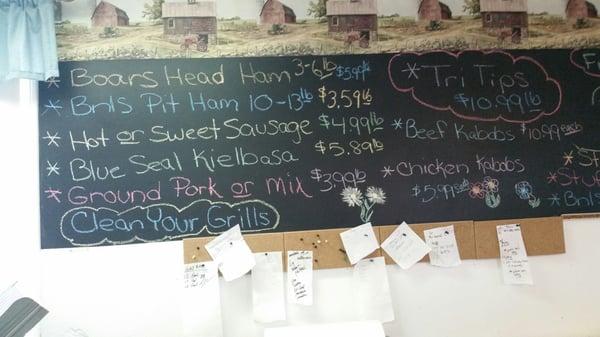 * Boars Head Ham 3-6lb $5.99lb
* Bnls Pit Ham 10-13lb $3.59lb
* Hot or Sweet Sausage $4.99lb
* Blue Seal Kielbasa $5.89lb
* Ground Pork or Mix $3.99lb
Clean Your Grills
* Tri Tips
$10.99lb
* Beef Kabobs $10.99 each
* Chicken Kabobs
$5.99
Fr
* St
* Stu
* Bnls